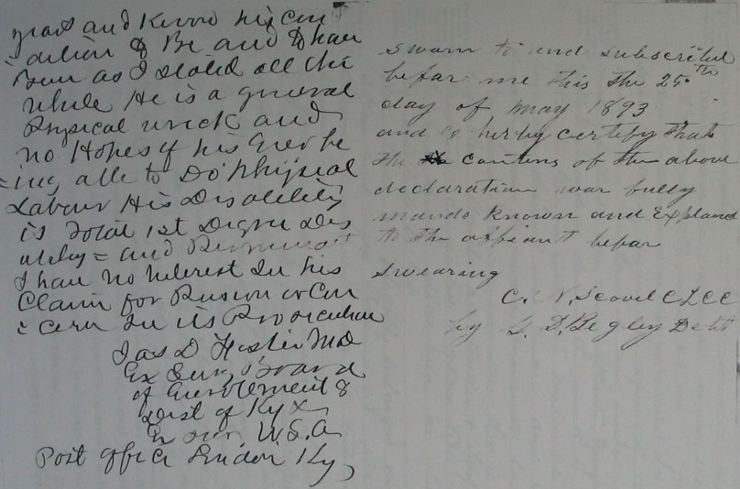 years and Know his Con
=dition to Be and to have
Been as I stated all the
while He is a general
Physical wreck and
no Hopes of his Ever be
=ing able to Do Physical
Labour His Disability
is Total 1st Degree Dis
ability = and Permanent
I have no Interest In his
Claim for Pension or Con
=cern In its Prosecution
Jas D Foster MD
Ex Surg Board
of Enrolement 8
Dist of Ky x
Ex Sur U.S.A
Post office London Ky,
sworn to and subscribed
befar me this the 25th
day of may 1893
and I herby certify that
the contens of the above
declaration war fully
mande known and Explaned
to the affiant befar
swearing
C. N. Scovel CLCC
by D. Begley Dept